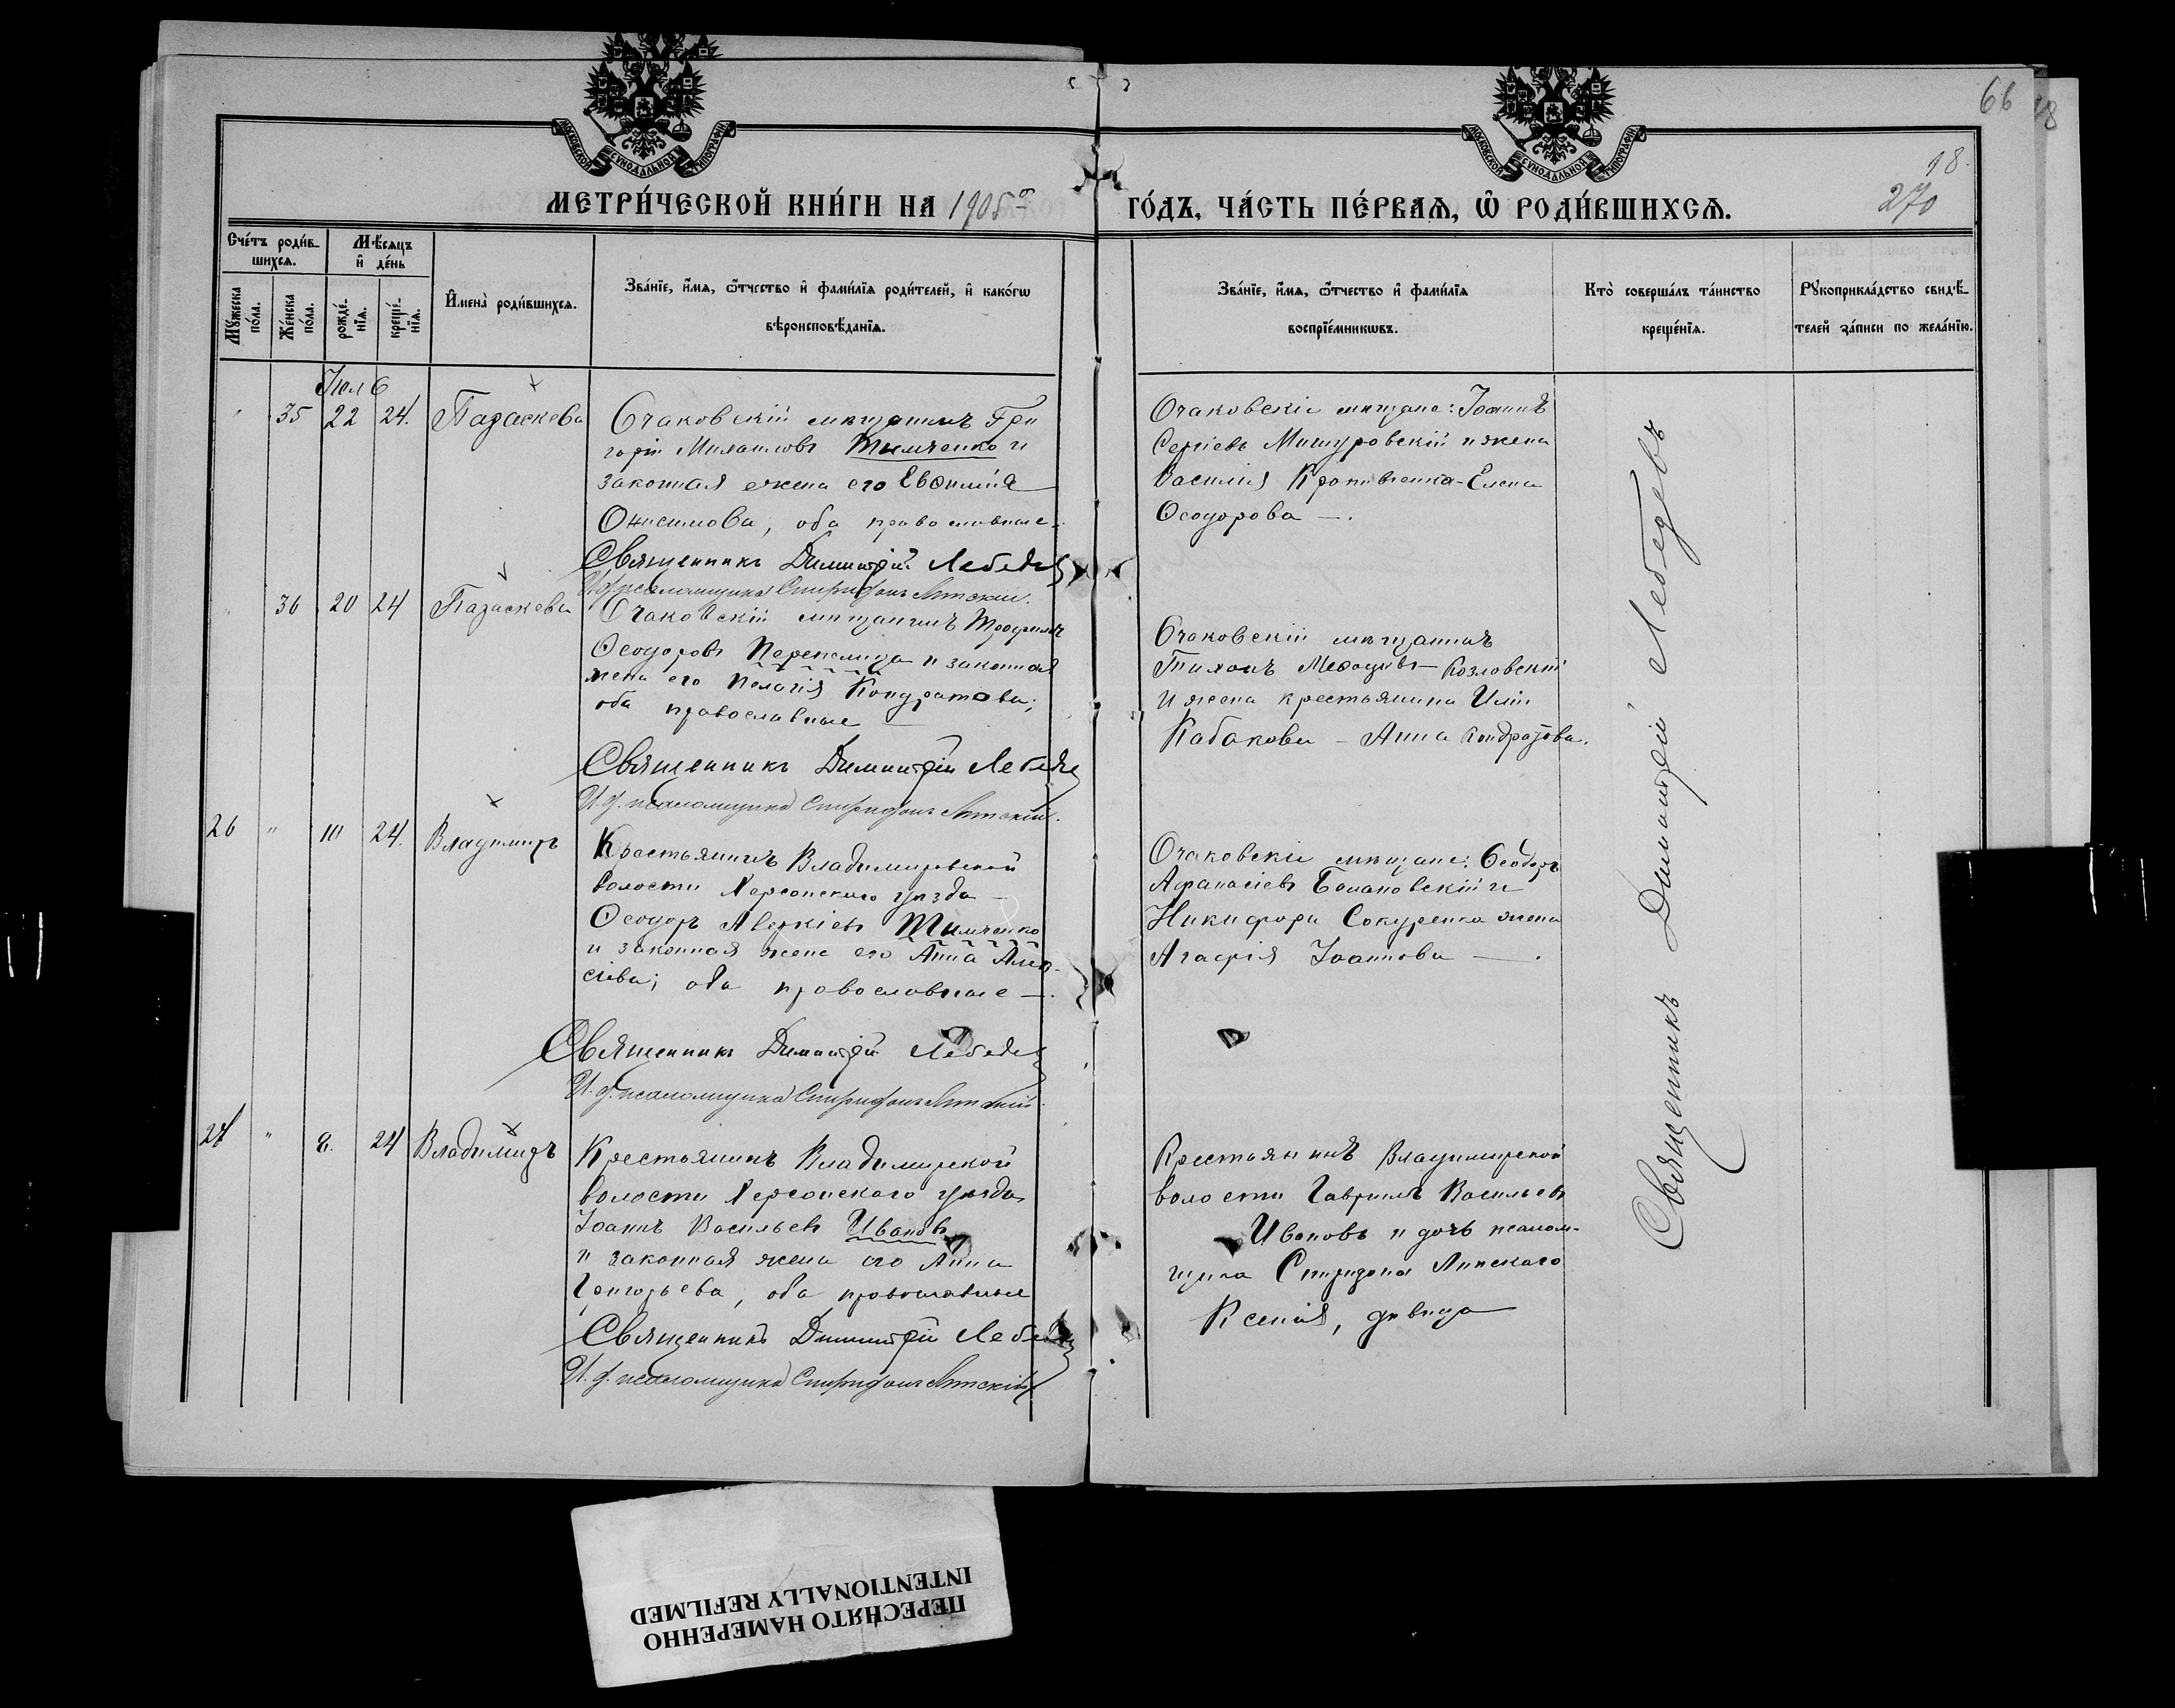 66
18
18.
270
МОСКОВСКОЙ СѴНОДАЛЬНОЙ ТИПОГРАФІИ
МОСКОВСКОЙ СѴНОДАЛЬНОЙ ТИПОГРАФІИ
МЕТРИ́ЧЕСКОЙ КНИ́ГИ НА 1905й ГО́ДЪ, ЧА́СТЬ ПЕ́РВАѦ, Ѡ РОДИ́ВШИХСѦ.
Сче́тъ роди́вшихсѧ.
Мꙋ́жеска по́ла.
Же́нска по́ла.
Мѣ́сѧцъ и҆ де́нь
рожде́нїѧ.
креще́нїѧ.
И҆мена̀ роди́вшихсѧ.
Зва́нїе, и҆́мѧ, ѻ҆́тчество и҆ фами́лїѧ роди́телей, и҆ како́гѡ
вѣроисповѣ́данїѧ.
Зва́нїе, и҆́мѧ, ѻ҆́тчество и҆ фами́лїѧ
воспрїе́мникѡвъ.
Кто̀ соверша́лъ та́инство
креще́нїѧ.
Рꙋкоприкла́дство свидѣ́телей за́писи по жела́нїю.
Іюль
35 22 24. Параскева
Очаковскій мѣщанинъ Гри
горій Михаиловъ Тимченко и
законная жена его Евѳимія
Онисимова, оба православные.
Священникъ Димитрій Лебедевъ
И. д. псаломщика Спиридонъ Липскій.
Очаковскіе мѣщане: Іоаннъ
Сергіевъ Мишуровскій и жена
Василія Кропивченка - Елена
Ѳеодорова —.
36 20 24 Параскева
Очаковскій мѣщанинъ Трофимъ
Ѳеодоровъ Перепелица и законная
жена его Пелагія Кондратова;
оба православные —
Священникъ Димитрій Лебедевъ
И. д. псаломщика Спиридонъ Липскій.
Очаковскій мѣщанинъ
Тихонъ Меѳодіевъ — Козловскій
и жена крестьянина Иліи
Кабакова — Анна Кондратова.
26 " 10 24. Владимиръ
Крестьянинъ Владимировской
волости Херсонскаго уѣзда —
Ѳеодоръ Аверкіевъ Тимченко
и законная жена его Анна Алек-
сіева; оба православные —.
Священникъ Димитрій Лебедевъ
И. д. псаломщика Спиридонъ Липскій.
Очаковскіе мѣщане: Ѳеодоръ
Афанасіевъ Бомановскій и
Никифора Сокуренка жена
Агафія Іоаннова —.
27 " 8. 24 Владимиръ
Крестьянинъ Владимирской
волости Херсонскаго уѣзда
Іоаннъ Васильевъ Ивановъ
и законная жена его Анна
Григорьева, оба православные
Священникъ Димитрій Лебедевъ
И. д. псаломщика Спиридонъ Липскій
Крестьянинъ Владимирской
волости Гавриилъ Васильевъ
Ивановъ и дочь псалом-
щика Спиридона Липскаго
Ксенія, дѣвица
Священникъ Димитрій Лебедевъ
ПЕРЕСНЯТО НАМЕРЕННО
INTENTIONALLY REFILMED